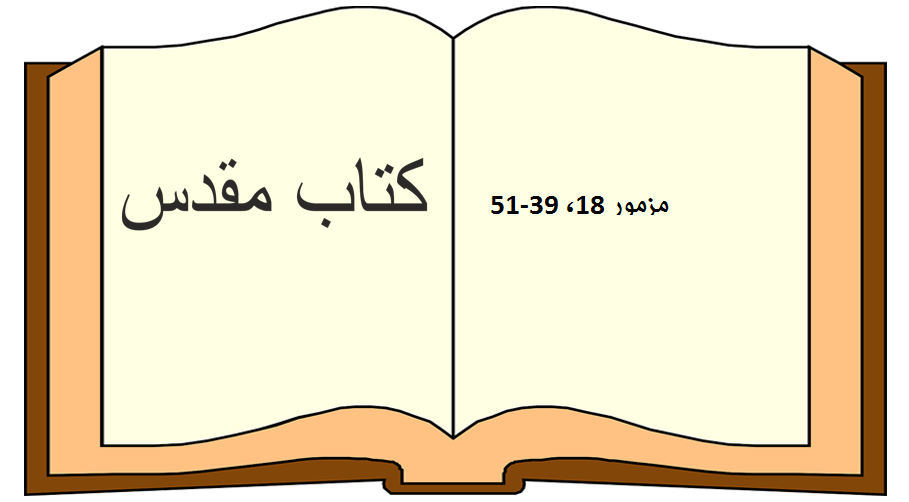 کتاب مقدس
مزمور 18، 39-51